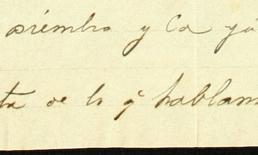 siembra y Ca ya
ta de lo q' hablam